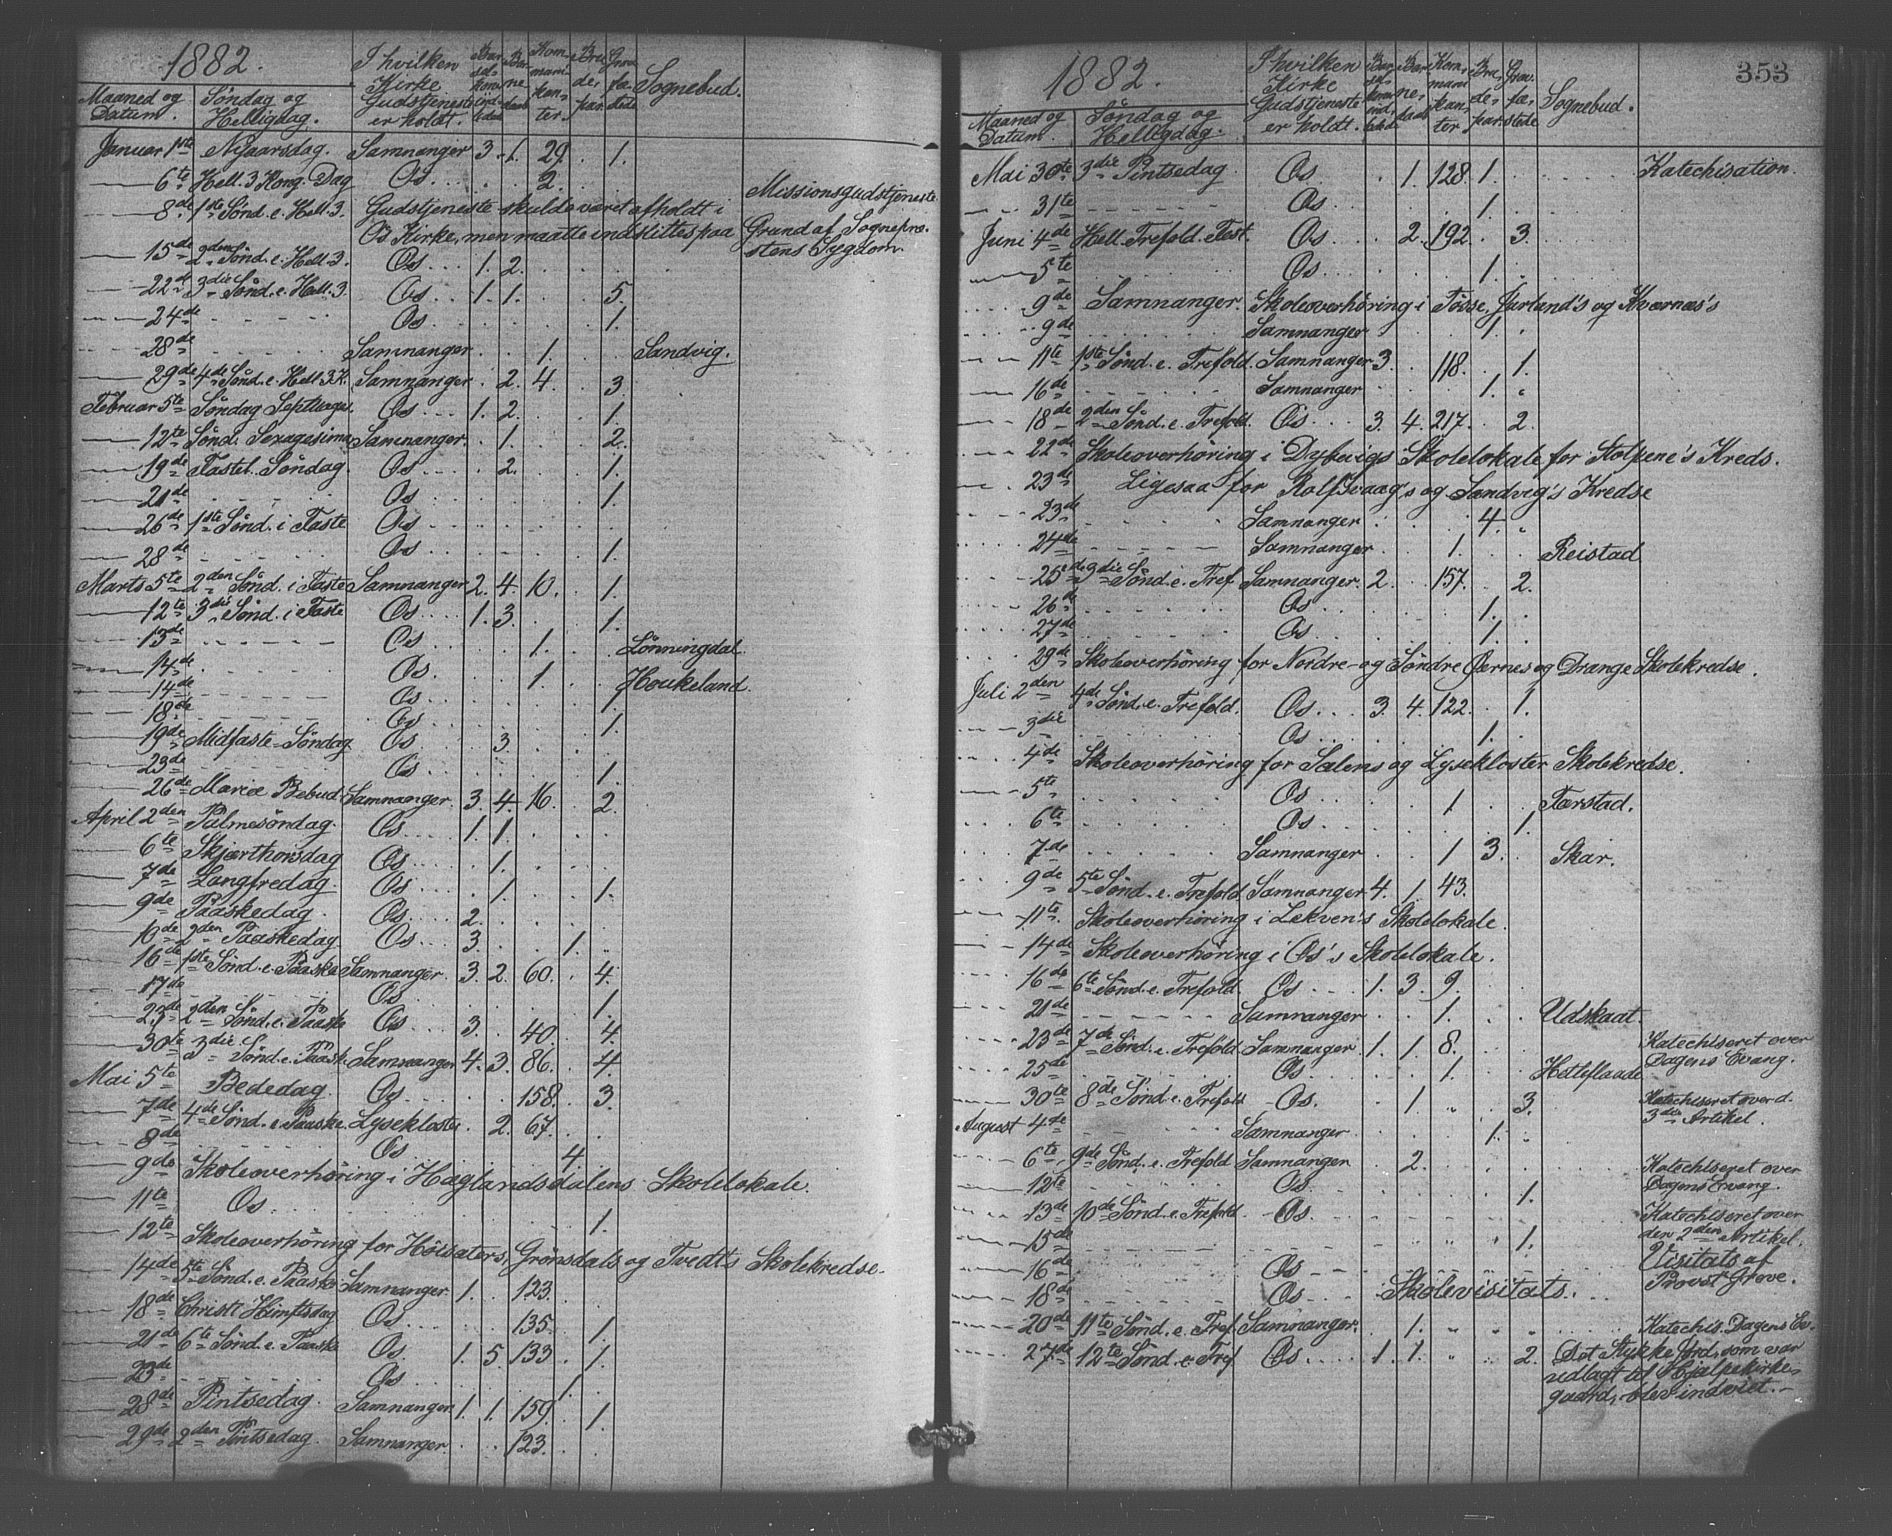 1882.
Maaned og Datum.
Søndag og Helligdag.
I hvilken Kirke Gudstjeneste er holdt.
Barselkone indledede
Barnedaab
Kommunikanter.
Brudepar.
Gravfæstede
Sognebud.
Januar 1ste Nyaarsdag. Samnanger 3. 1. 29. 1.
6te Hell. 3 Kong. Dag Os. 2.
8de 1ste Sønd. e. Hell. 3. Gudstjeneste skulde været afholdt i Missionsgudstjeneste
Os Kirke, men maatte indstilles paa Grund af Sognepræ-
stens Sygdom.
15de 2den Sønd. e. Hell. 3. Os 1. 2.
22de 3die Sønd. e. Hell. 3 Os 1. 1. 5.
24de Os 1.
28de Samnanger 1. Sandvig.
29de 4de Sønd. e. Hell. 3 K. Samnanger 2. 4. 3.
Februar 5te Søndag Septuages. Os 1. 2. 1.
12te Sønd. Sexagesima Samnanger 1. 2.
19de Fastel. Søndag. Os 2. 1.
21de Os 1.
26de 1ste Sønd. i Faste Os
28de Os 1.
Marts 5te 2den Sønd. i Faste Samnanger 2. 4. 10. 1.
12te 3die Sønd. i Faste Os 1. 3. 1.
13de Os 1. Lønningdal
14de Os. 1. Houkeland.
14de Os 1.
18de Os 1.
19de Midfaste-Søndag Os 3.
23de Os 1.
26de Mariæ Bebud. Samnanger. 3. 4. 16. 2.
April 2den Palmesøndag. Os 1. 1.
6te Skjærthorsdag Os 1.
7de Langfredag Os 1. 1.
9de Paaskedag. Os 2.
10de 2den Paaskedag Os 3. 1.
16de 1ste Sønd. e. Paaske Samnanger. 3. 2. 60. 4.
17de Os 1.
23de 2den Sønd. e. Paaske Os 3. 40. 4.
30te 3die Sønd. e. Paaske Samnanger 4. 3. 86. 4
Mai 5te Bededag. Os 158. 3.
7de 4de Sønd. e. Paaske. Lysekloster 2. 67.
8de Os 4.
9de Skoleoverhøring i Haglandsdalens Skolelokale.
11te Os. 1.
12te Skoleoverhøring for Holsaters, Grønsdals og Tvedt's Skolekredse.
14de 5te Sønd. e. Paaske Samnanger. 1. 123.
18de Christi Himflsdag Os 135. 1.
21de 6te Sønd. e. Paaske Os 1. 5. 133. 1.
23de Os 1.
28de Pintsedag. Samnanger. 1. 1. 159. 1.
29de 2den Pintsedag. Samnanger. 123.
353
1882.
Maaned og Datum.
Søndag og Helligdag.
I hvilken Kirke Gudstjeneste er holdt.
Kommunikanter
Brudepar.
Gravfæstede
Sognebud.
Mai 30te 3die Pintsedag Os 1. 128. 1. Katechisation.
31te Os 1.
Juni 4de Hell. Trefold. Fest. Os 2. 192. 3.
5te Os 1.
9de Samnanger. Skoleoverhøring i Tosse, Jarland's og Kvernæs's
9de Samnanger 1.
11te 1ste Sønd. e. Trefold. Samnanger 3. 118. 1.
16de Samnanger 1.
18de 2den Sønd. e. Trefold. Os 3. 4. 217. 2.
22de Skoleoverhøring i Dybvigs Skolelokale for Stolpene's Kreds.
23de Ligesaa for Rolfsvaag's og Sandvig's Kredse
23de Samnanger 4.
24de Samnanger 1. Reistad
25de 3die Sønd. e. Tref. Samnanger. 2. 157. 2.
26de Os 1.
27de Os 1.
29de Skoleoverhøring for Nordre- og Søndre Øernes og Drange Skolekredse.
Juli 2den 4de Sønd. e. Trefold. Os 3. 4. 122. 1.
3die Os 1.
4de Skoleoverhøring for Sælens og Lysekloster Skolekredse.
5te Os 1 Færstad.
6te Os 1.
7de Samnanger 1 3. Skar.
9de 5te Sønd. e. Trefold. Samnanger 4. 1. 43.
11te. Skoleoverhøring i Lekven's Skolelokale.
14de Skoleoverhøring i Os's Skolelokale.
16de 6te Sønd. e. Trefold. Os 1. 3. 9.
21de Samnanger 1. Udskaat.
23de 7de Sønd. e. Trefold Samnanger. 1. 1. 8. Katechiseret over
Dagens Evang.
25de Os. 1. Hetleflaade
30te 8de Sønd. e. Trefold Os. 1. 3. Katechiseret over d.
3die Artikel.
August 4de Samnanger 1.
6te 9de Sønd. e. Trefold Samnanger 2. Katechiseret over
Dagens Evang.
12te Os. 1.
13de 10de Sønd. e. Trefold. Os. Katechiseret over
den 2den Artikel.
15de 1.
16de Os Visitats af
Provst Grove.
18de Os Skolevisitats.
20de 11te Sønd. e. Tref. Samnanger. 1. Katechis. Dagens Ev.
27de 12te Sønd. e. Tref Os 1. 1. 2. Det Stykke Jord, som var
udlagt til Hjælpekirke-
gaard, blev indviet.